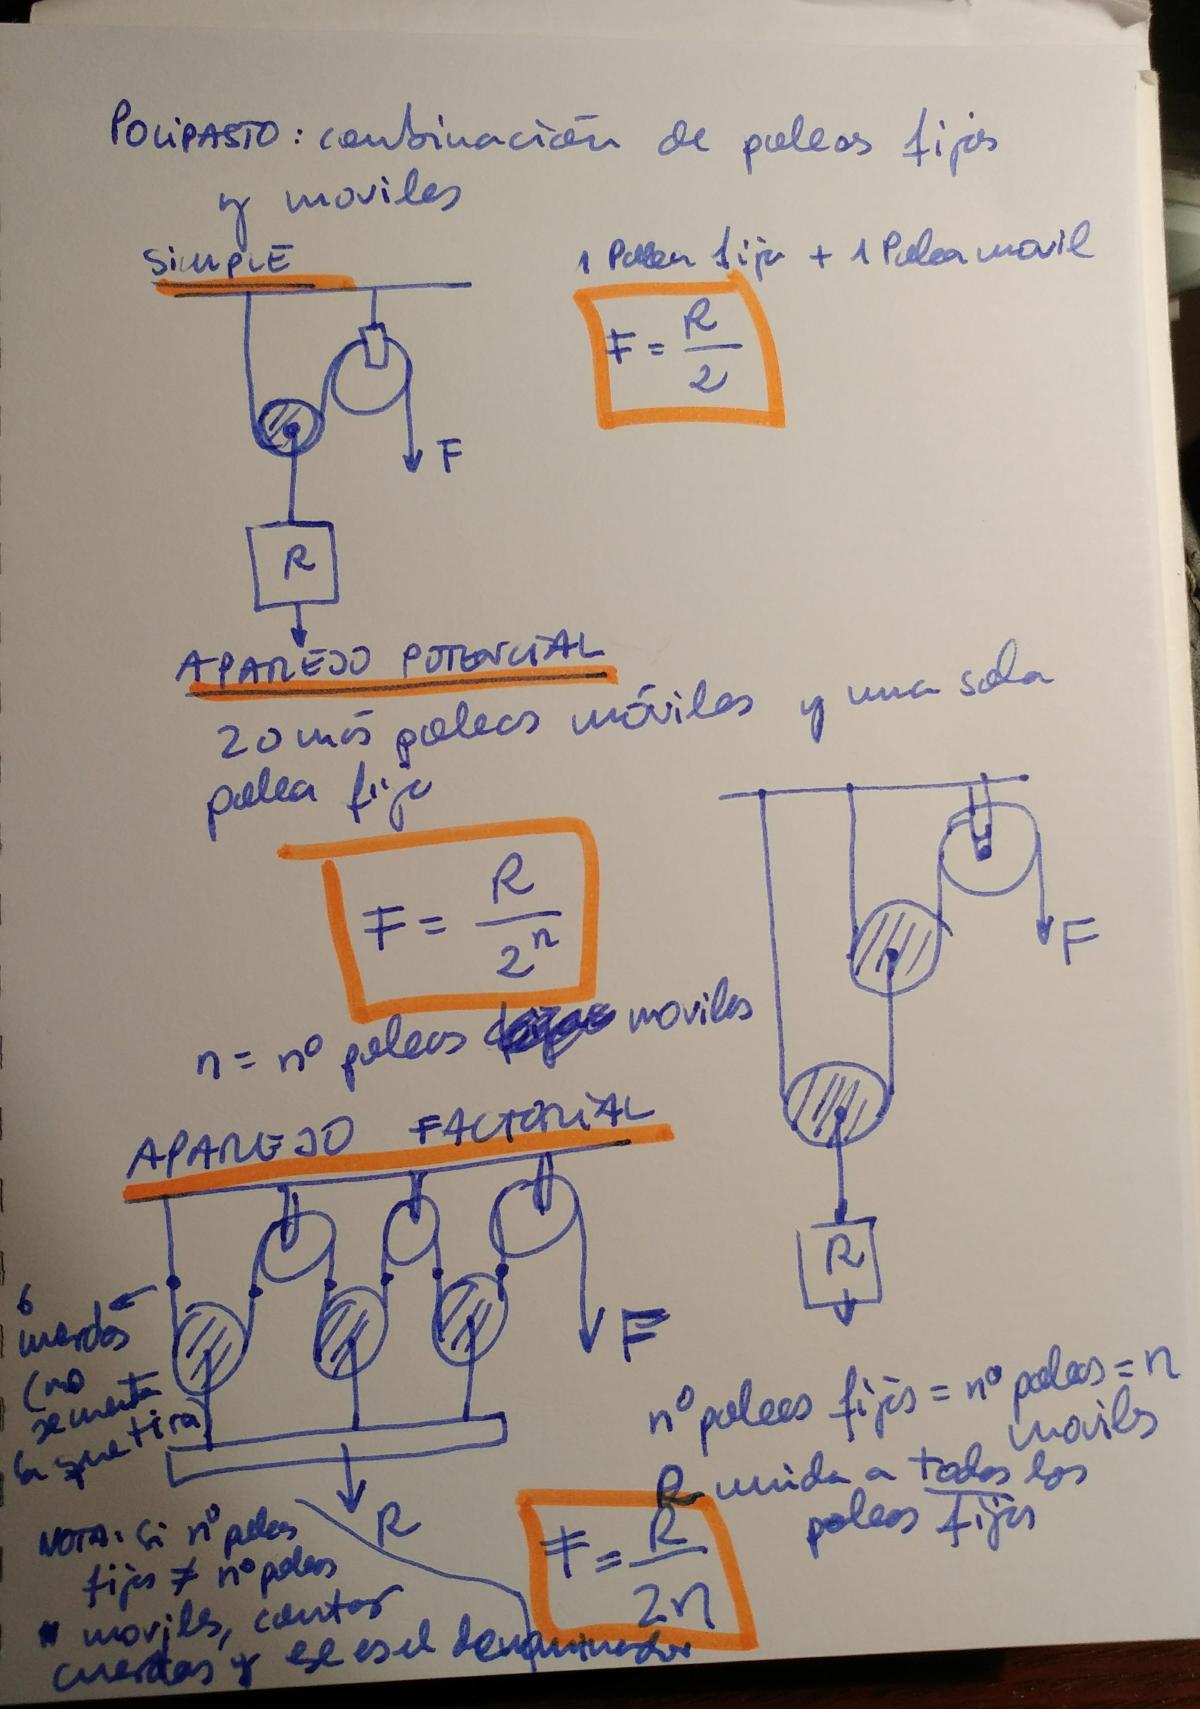 POLIPASTO: combinación de poleas fijas
y moviles
SIMPLE
1 Polea fija + 1 Polea movil
F = R/2
F
R
APAREJO POTENCIAL
2 o más poleas móviles y una sola
polea fija
F = R/2^n
F
n = nº poleas moviles
R
APAREJO FACTORIAL
F
6
cuerdas
(no
se cuenta
la que tira)
R
nº poleas fijas = nº poleas = n
moviles
R unida a todas las
poleas fijas
F = R/2n
NOTA: Si nº poleas
fijas ≠ nº poleas
moviles, contar
cuerdas y ese es el denominador